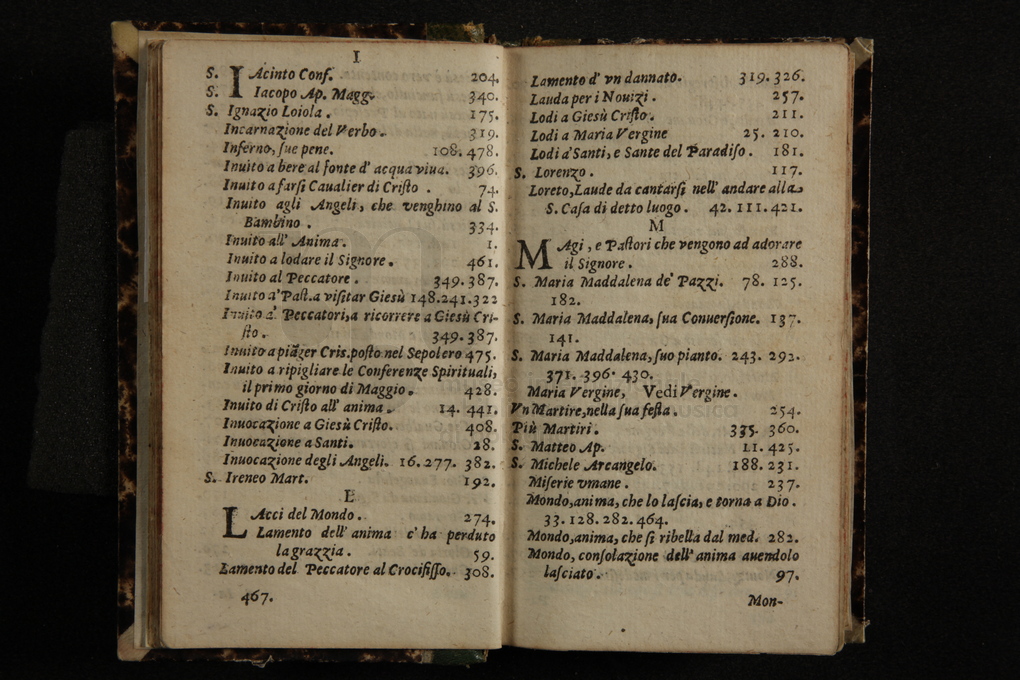 I
S. IAcinto Conf. 204.
S. Iacopo Ap. Magg. 340.
S. Ignazio Loiola. 175.
Incarnazione del Verbo. 319.
Inferno, ſue pene. 108. 478.
Inuito a bere al fonte d' acqua viua. 396.
Inuito a farſi Caualier di Criſto. 74.
Inuito agli Angeli, che venghino al S.
Bambino. 334.
Inuito all' Anima. 1.
Inuito a lodare il Signore. 461.
Inuito al Peccatore. 349. 387.
Inuito a' Paſt.a viſitar Giesù 148.241.322
Inuito a' Peccatori,a ricorrere a Giesù Cri-
ſto. 349.387.
Inuito a piãger Cris.poſto nel Sepolcro 475.
Inuito a ripigliare le Conferenze Spirituali,
il primo giorno di Maggio. 428.
Inuito di Criſto all' anima. 14. 441.
Inuocazione a Giesù Criſto. 408.
Inuocazione a Santi. 28.
Inuocazione degli Angeli. 16.277. 382.
S. Ireneo Mart. 192.
L
LAcci del Mondo. 274.
Lamento dell' anima c' ha perduto
la grazzia. 59.
Lamento del Peccatore al Crocifiſſo. 308.
467.
Lamento d' vn dannato. 319. 326.
Lauda per i Nouizi. 257.
Lodi a Giesù Criſto. 211.
Lodi a Maria Vergine 25. 210.
Lodi a' Santi, e Sante del Paradiſo. 181.
S. Lorenzo. 117.
Loreto, Laude da cantarſi nell' andare alla
S. Caſa di detto luogo. 42. 111. 421.
M
MAgi, e Paſtori che vengono ad adorare
il Signore. 288.
S. Maria Maddalena de' Pazzi. 78. 125.
182.
S. Maria Maddalena, ſua Conuerſione. 137.
141.
S. Maria Maddalena, ſuo pianto. 243. 292.
371. 396. 430.
Maria Vergine, Vedi Vergine.
Vn Martire, nella ſua feſta. 254.
Più Martiri. 335. 360.
S. Matteo Ap. 11. 425.
S. Michele Arcangelo. 188. 231.
Miſerie vmane. 237.
Mondo, anima, che lo laſcia, e torna a Dio.
33. 128. 282. 464.
Mondo, anima, che ſi ribella dal med. 282.
Mondo, conſolazione dell' anima auendolo
laſciato. 97.
Mon-